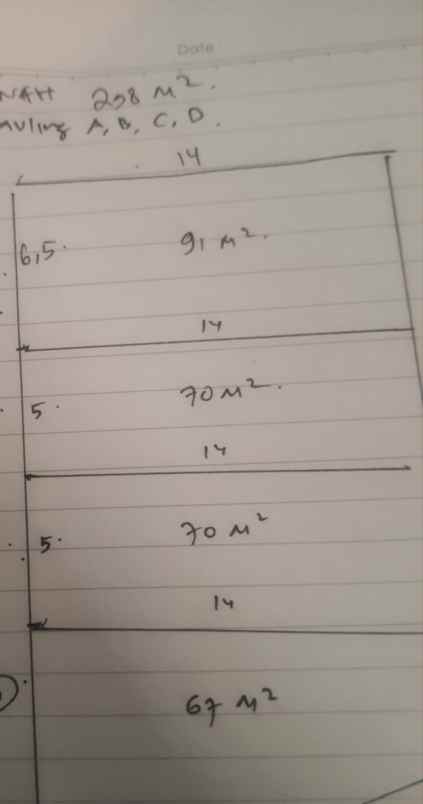 Date
NAH 298 M².
AVLING A, B, C, D.
14
6,5. 91 M².
14
5. 70 M².
14
5. 70 M²
14
67 M²